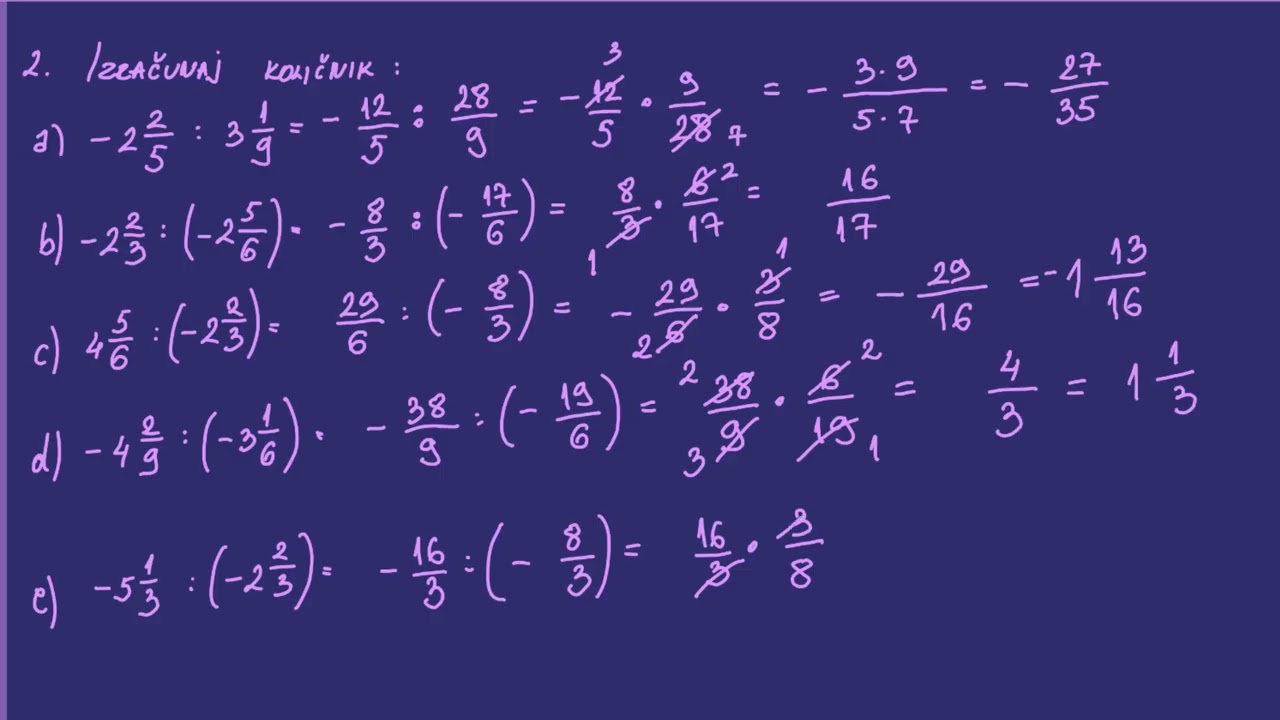 2. Izračunaj količnik:
a) -2 2/5 : 3 1/9 = - 12/5 : 28/9 = - 12/5 3 · 9/28 7 = - 3·9/5·7 = - 27/35
b) -2 2/3 : (-2 5/6) = - 8/3 : (- 17/6) = 8/3 1 · 6/17 2 = 16/17
c) 4 5/6 : (-2 2/3) = 29/6 : (- 8/3) = - 29/6 2 · 3/8 1 = - 29/16 = -1 13/16
d) -4 2/9 : (-3 1/6) = - 38/9 : (- 19/6) = 2 38/9 3 · 6/19 2 1 = 4/3 = 1 1/3
e) -5 1/3 : (-2 2/3) = - 16/3 : (- 8/3) = 16/3 · 3/8